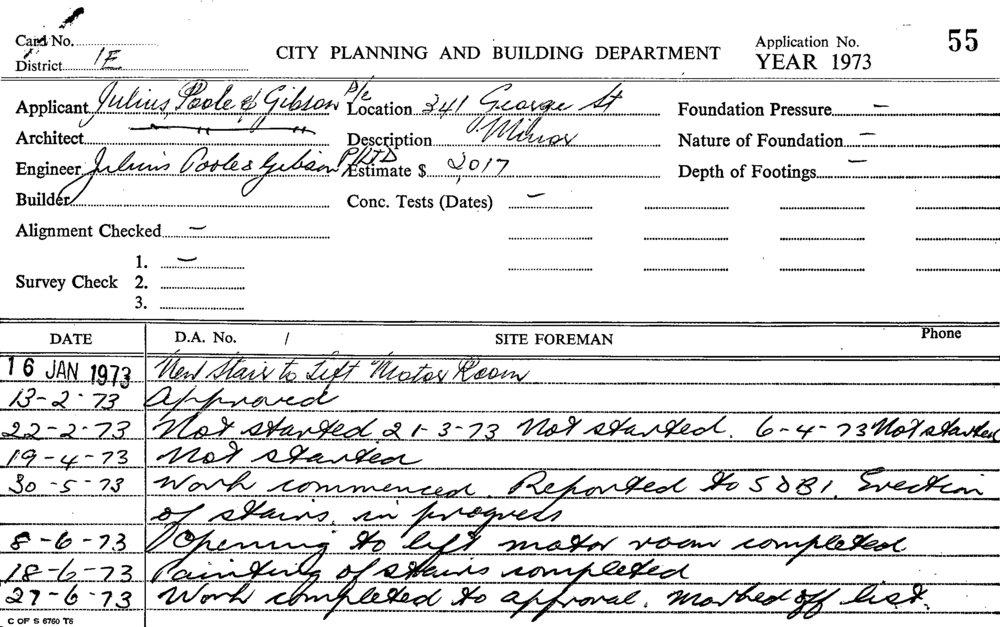 Card No.
District 1E
CITY PLANNING AND BUILDING DEPARTMENT
Application No.
YEAR 1973
55
Applicant Julius, Poole & Gibson P/L Location 341 George St Foundation Pressure —
Architect — " — " — Description Minor Nature of Foundation —
Engineer Julius Poole & Gibson P/LTD Estimate $ 2017 Depth of Footings —
Builder Conc. Tests (Dates) —
Alignment Checked —
Survey Check 1. —
2.
3.
DATE D.A. No. / SITE FOREMAN Phone
16 JAN 1973 New Stair to Lift Motor Room
13-2-73 Approved
22-2-73 Not started 21-3-73 Not started. 6-4-73 Not started
19-4-73 Not started
30-5-73 Work commenced. Reported to SDBI. Erection
of stairs in progress
8-6-73 Opening to lift motor room completed
18-6-73 Painting of stairs completed
27-6-73 Work completed to approval. Marked off list.
C OF S 6760 T6